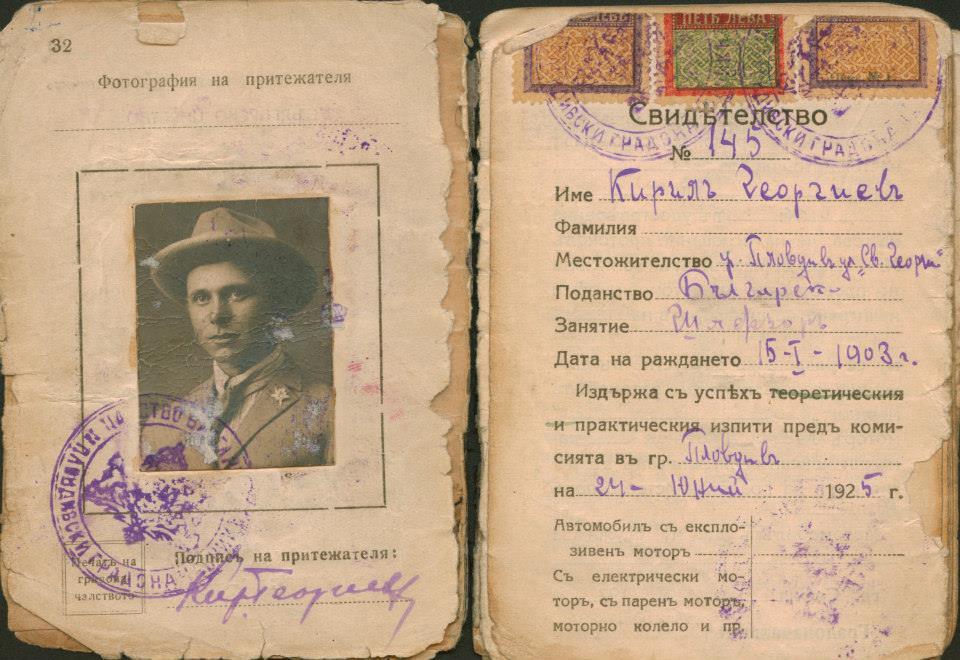 32
Фотография на притежателя
Печатъ на
градона-
чалството
Подпись на притежателя:
Кир Георгиевъ
ПЕТЬ ЛЕВА
Свидетелство
№ 145
Име Кирилъ Георгиевъ
Фамилия
Местожителство гр. Пловдивъ ул „Св. Георги“
Поданство Българско
Занятие Шофьоръ
Дата на раждането 15-I-1903 г.
Издържа съ успѣхъ теоретическия
и практическия изпити предъ коми-
сията въ гр. Пловдивъ
на 24- Юний 1925 г.
Автомобилъ съ експло-
зивенъ моторъ
Съ електрически мо-
торъ, съ паренъ моторъ,
моторно колело и пр.